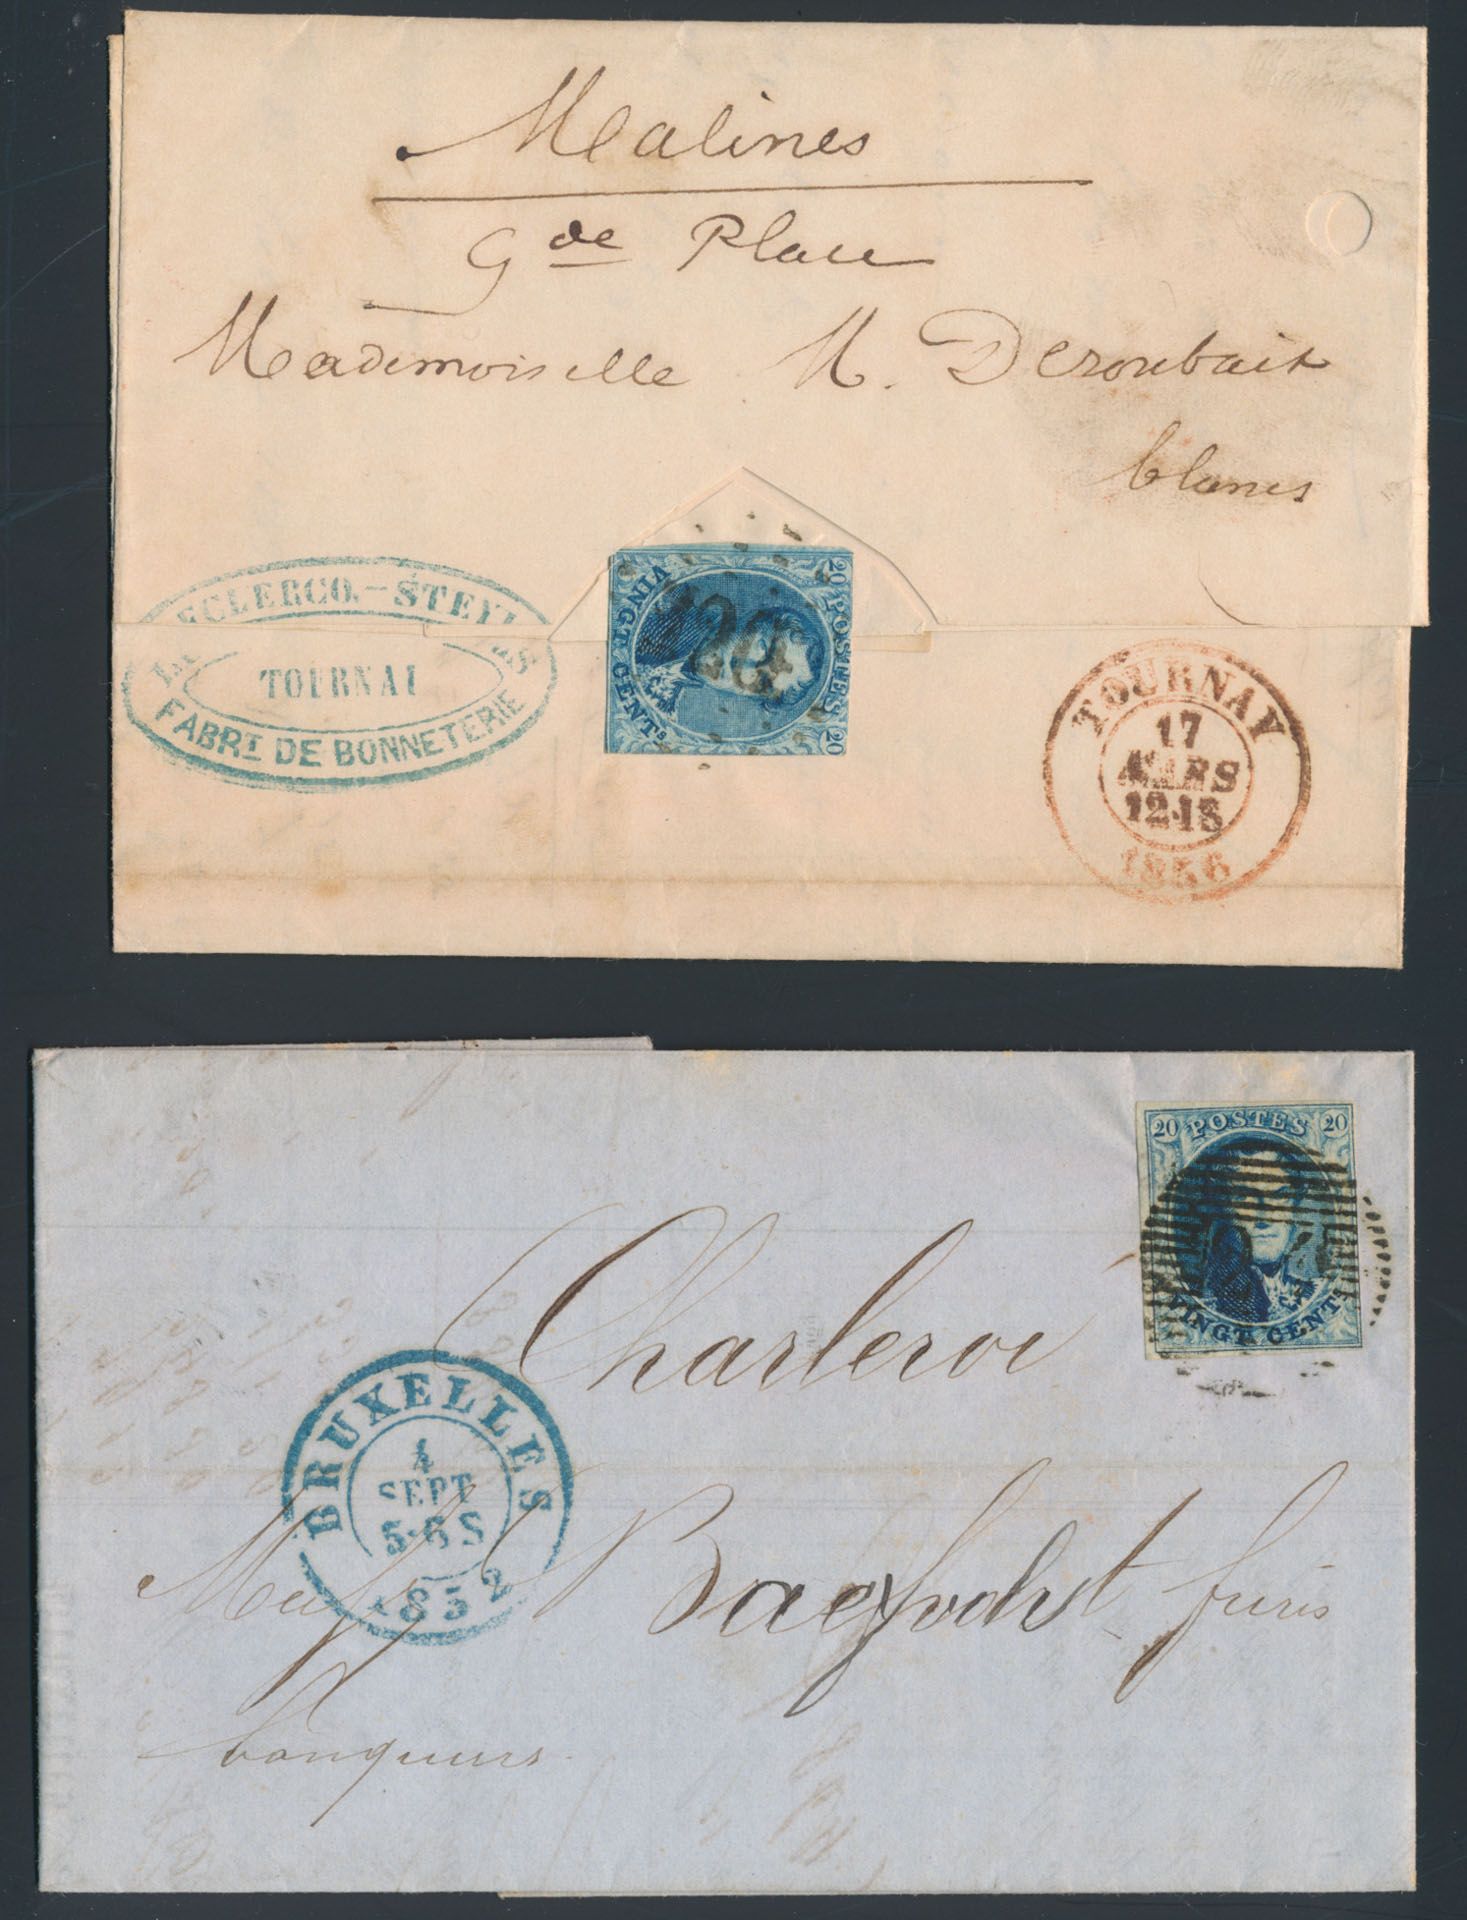 Malines
Gde Place
Mademoiselle M. Deroubaix
blancs
CLERCQ.-STEY
TOURNAI
FABRT DE BONNETERIE
20 POSTES 20
VINGT CENTS
TOURNAY
17
MARS
12·1S
1856
20 POSTES 20
VINGT CENTS
Charleroi
BRUXELLES
4
SEPT
5·6S
1852
frères
banquiers